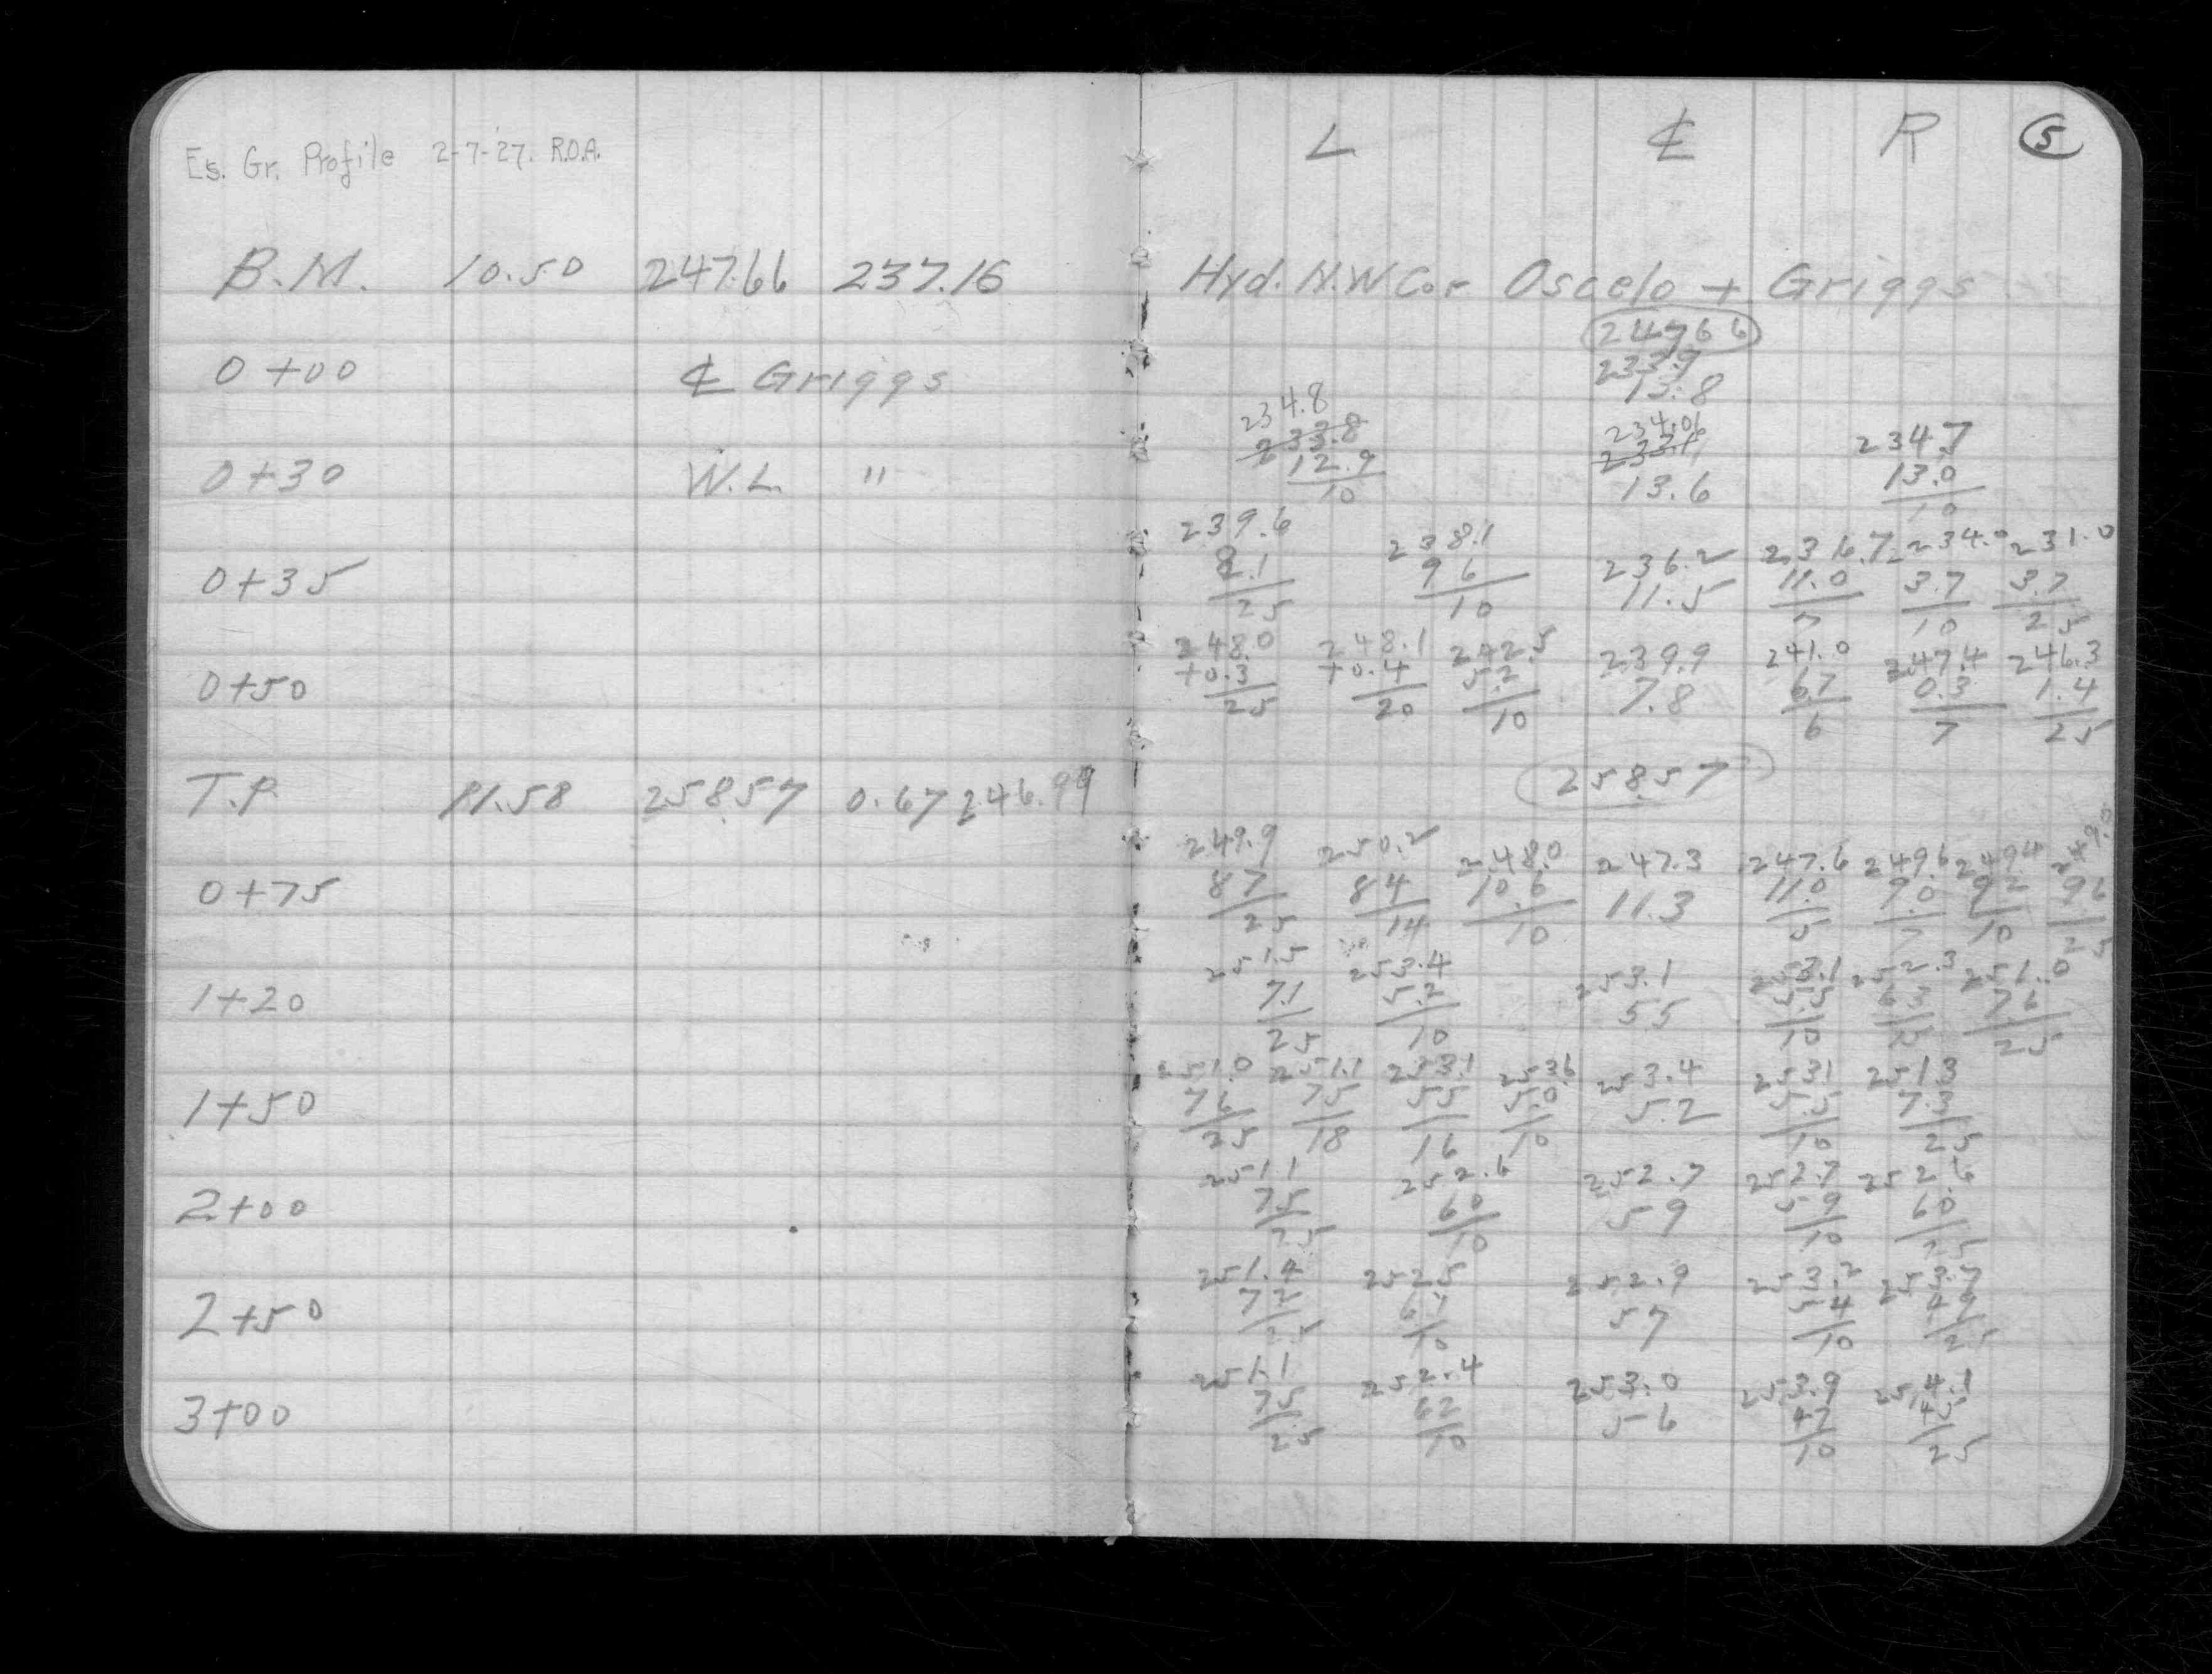 Es. Gr. Profile 2-7-27. R.O.A.
L ℄ R 5
B.M. 10.50 247.66 237.16 Hyd. N.W Cor Oscelo + Griggs
24766
233.9
0+00 ℄ Griggs 13.8
234.8 234.06 234.7
233.8 233.1
0+30 W.L. " 12.9 13.6 13.0
10 10
239.6 238.1 236.2 236.7 234.0 231.0
0+35 8.1 9 6 11.5 11.0 3.7 3.7
25 10 7 10 25
248.0 248.1 242.5 239.9 241.0 247.4 246.3
0+50 +0.3 +0.4 5.2 7.8 6.7 0.3 1.4
25 20 10 6 7 25
T.P. 11.58 258.57 0.67 246.99 258.57
249.9 250.2 248.0 247.3 247.6 249.6 249.4 249.0
0+75 8 7 8 4 10.6 11.3 11.0 9.0 9 2 9 6
25 14 10 5 7 10 25
251.5 253.4 253.1 253.1 252.3 251.0
1+20 7.1 5.2 5 5 5.5 6 3 7 6
25 10 10 15 25
251.0 251.1 253.1 253.6 253.4 253 1 251 3
1+50 7 6 7 5 5 5 5.0 5.2 5.5 7.3
25 18 16 10 10 25
251 1 252.6 252.7 252.7 252.6
2+00 7 5 6 0 5 9 5 9 6 0
25 10 10 25
251.4 252 5 252.9 253.2 253.7
2+50 7 2 6 1 5 7 5 4 4 9
25 10 10 25
251.1 252.4 253.0 253.9 254.1
3+00 7 5 6 2 5 6 4 7 4 5
25 10 10 25